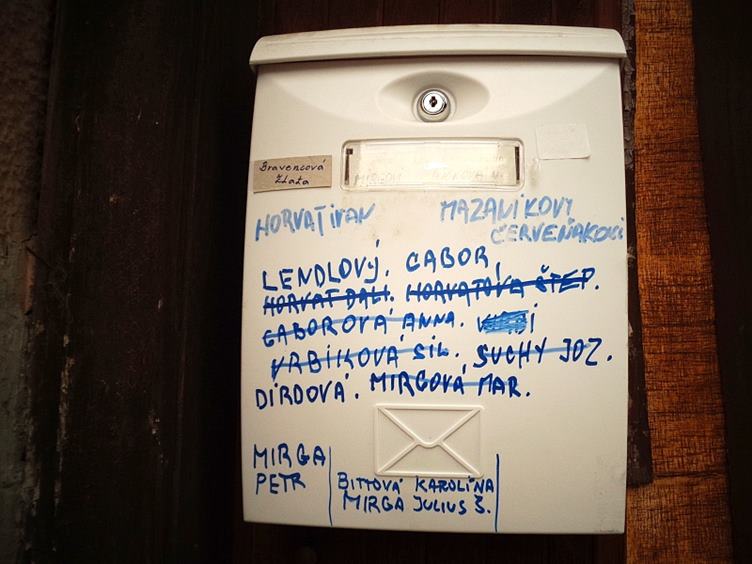 Bravencová
Zlata
HORVAT IVAN
MAZANÍKOVI
ČERVEŇAKOCI
LENDLOVÝ. GABOR,
HORVAT DALI. HORVATOVÁ ŠTEP.
GABOROVÁ ANNA.
VRBIKOVÁ SIL. SUCHY JOZ.
DIRDOVÁ. MIRGOVÁ MAR.
MIRGA
PETR
BITTOVÁ KAROLÍNA
MIRGA JULIUS Š.